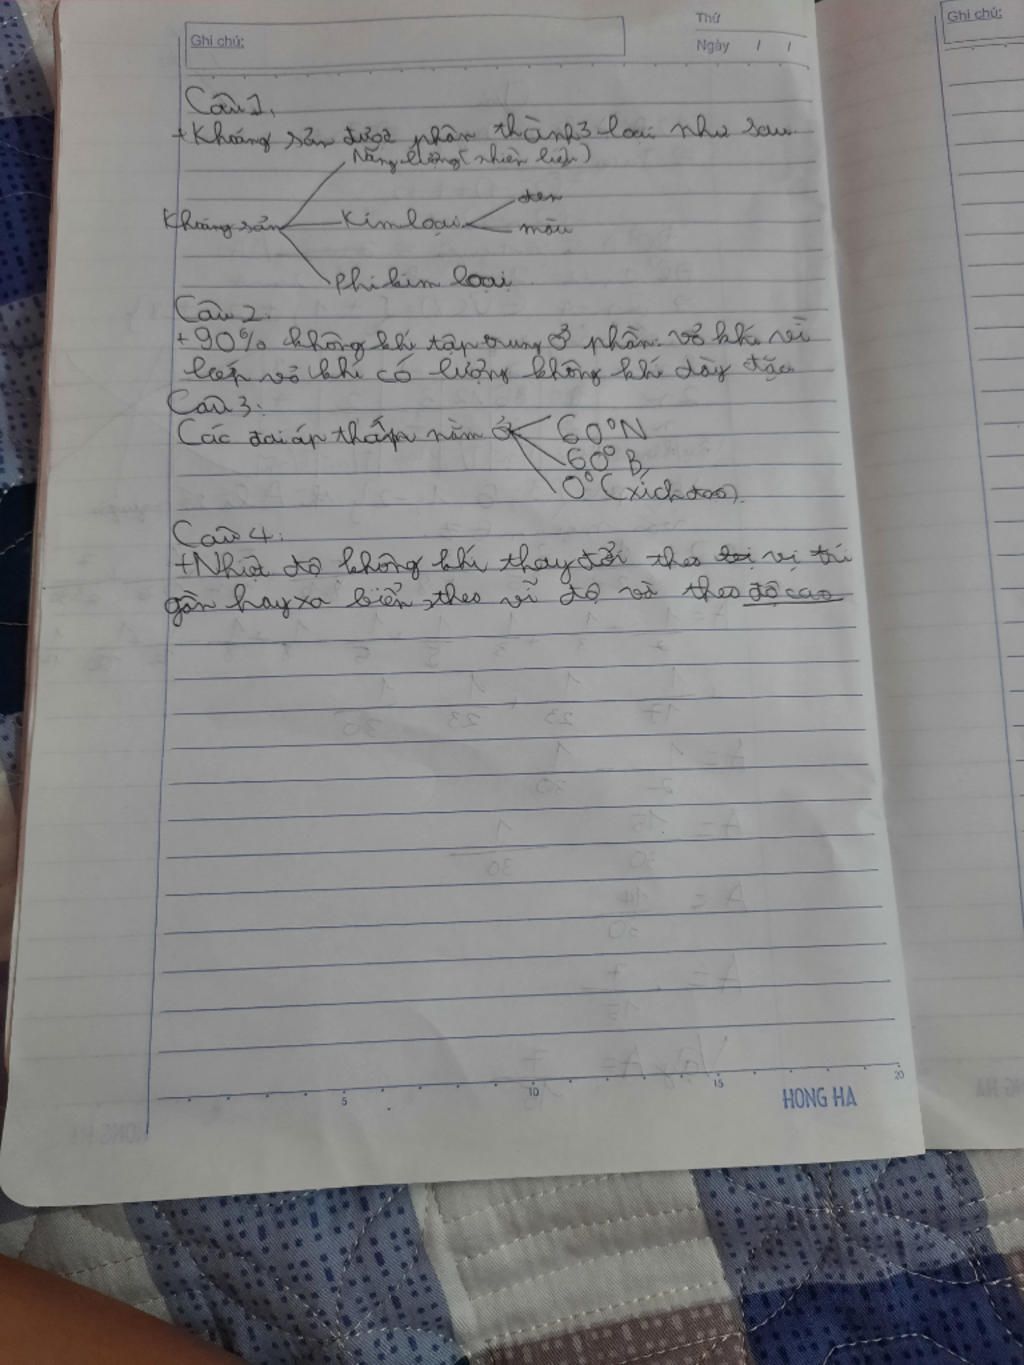 Ghi chú:
Thứ
Ngày / /
Ghi chú:
Câu 1.
+ Khoáng sản được phân thành 3 loại như sau
Năng lượng (nhiên liệu)
Khoáng sản
Kim loại
đen
màu
Phi kim loại
Câu 2.
+ 90% không khí tập trung ở phần vỏ khí vì
lớp vỏ khí có lượng không khí dày đặc
Câu 3:
Các đai áp thấp nằm ở
60°N
60°B
0° (xích đạo).
Câu 4:
+ Nhiệt độ không khí thay đổi theo vị trí
gần hay xa biển, theo vĩ độ và theo độ cao
5 10 15 20
HONG HA